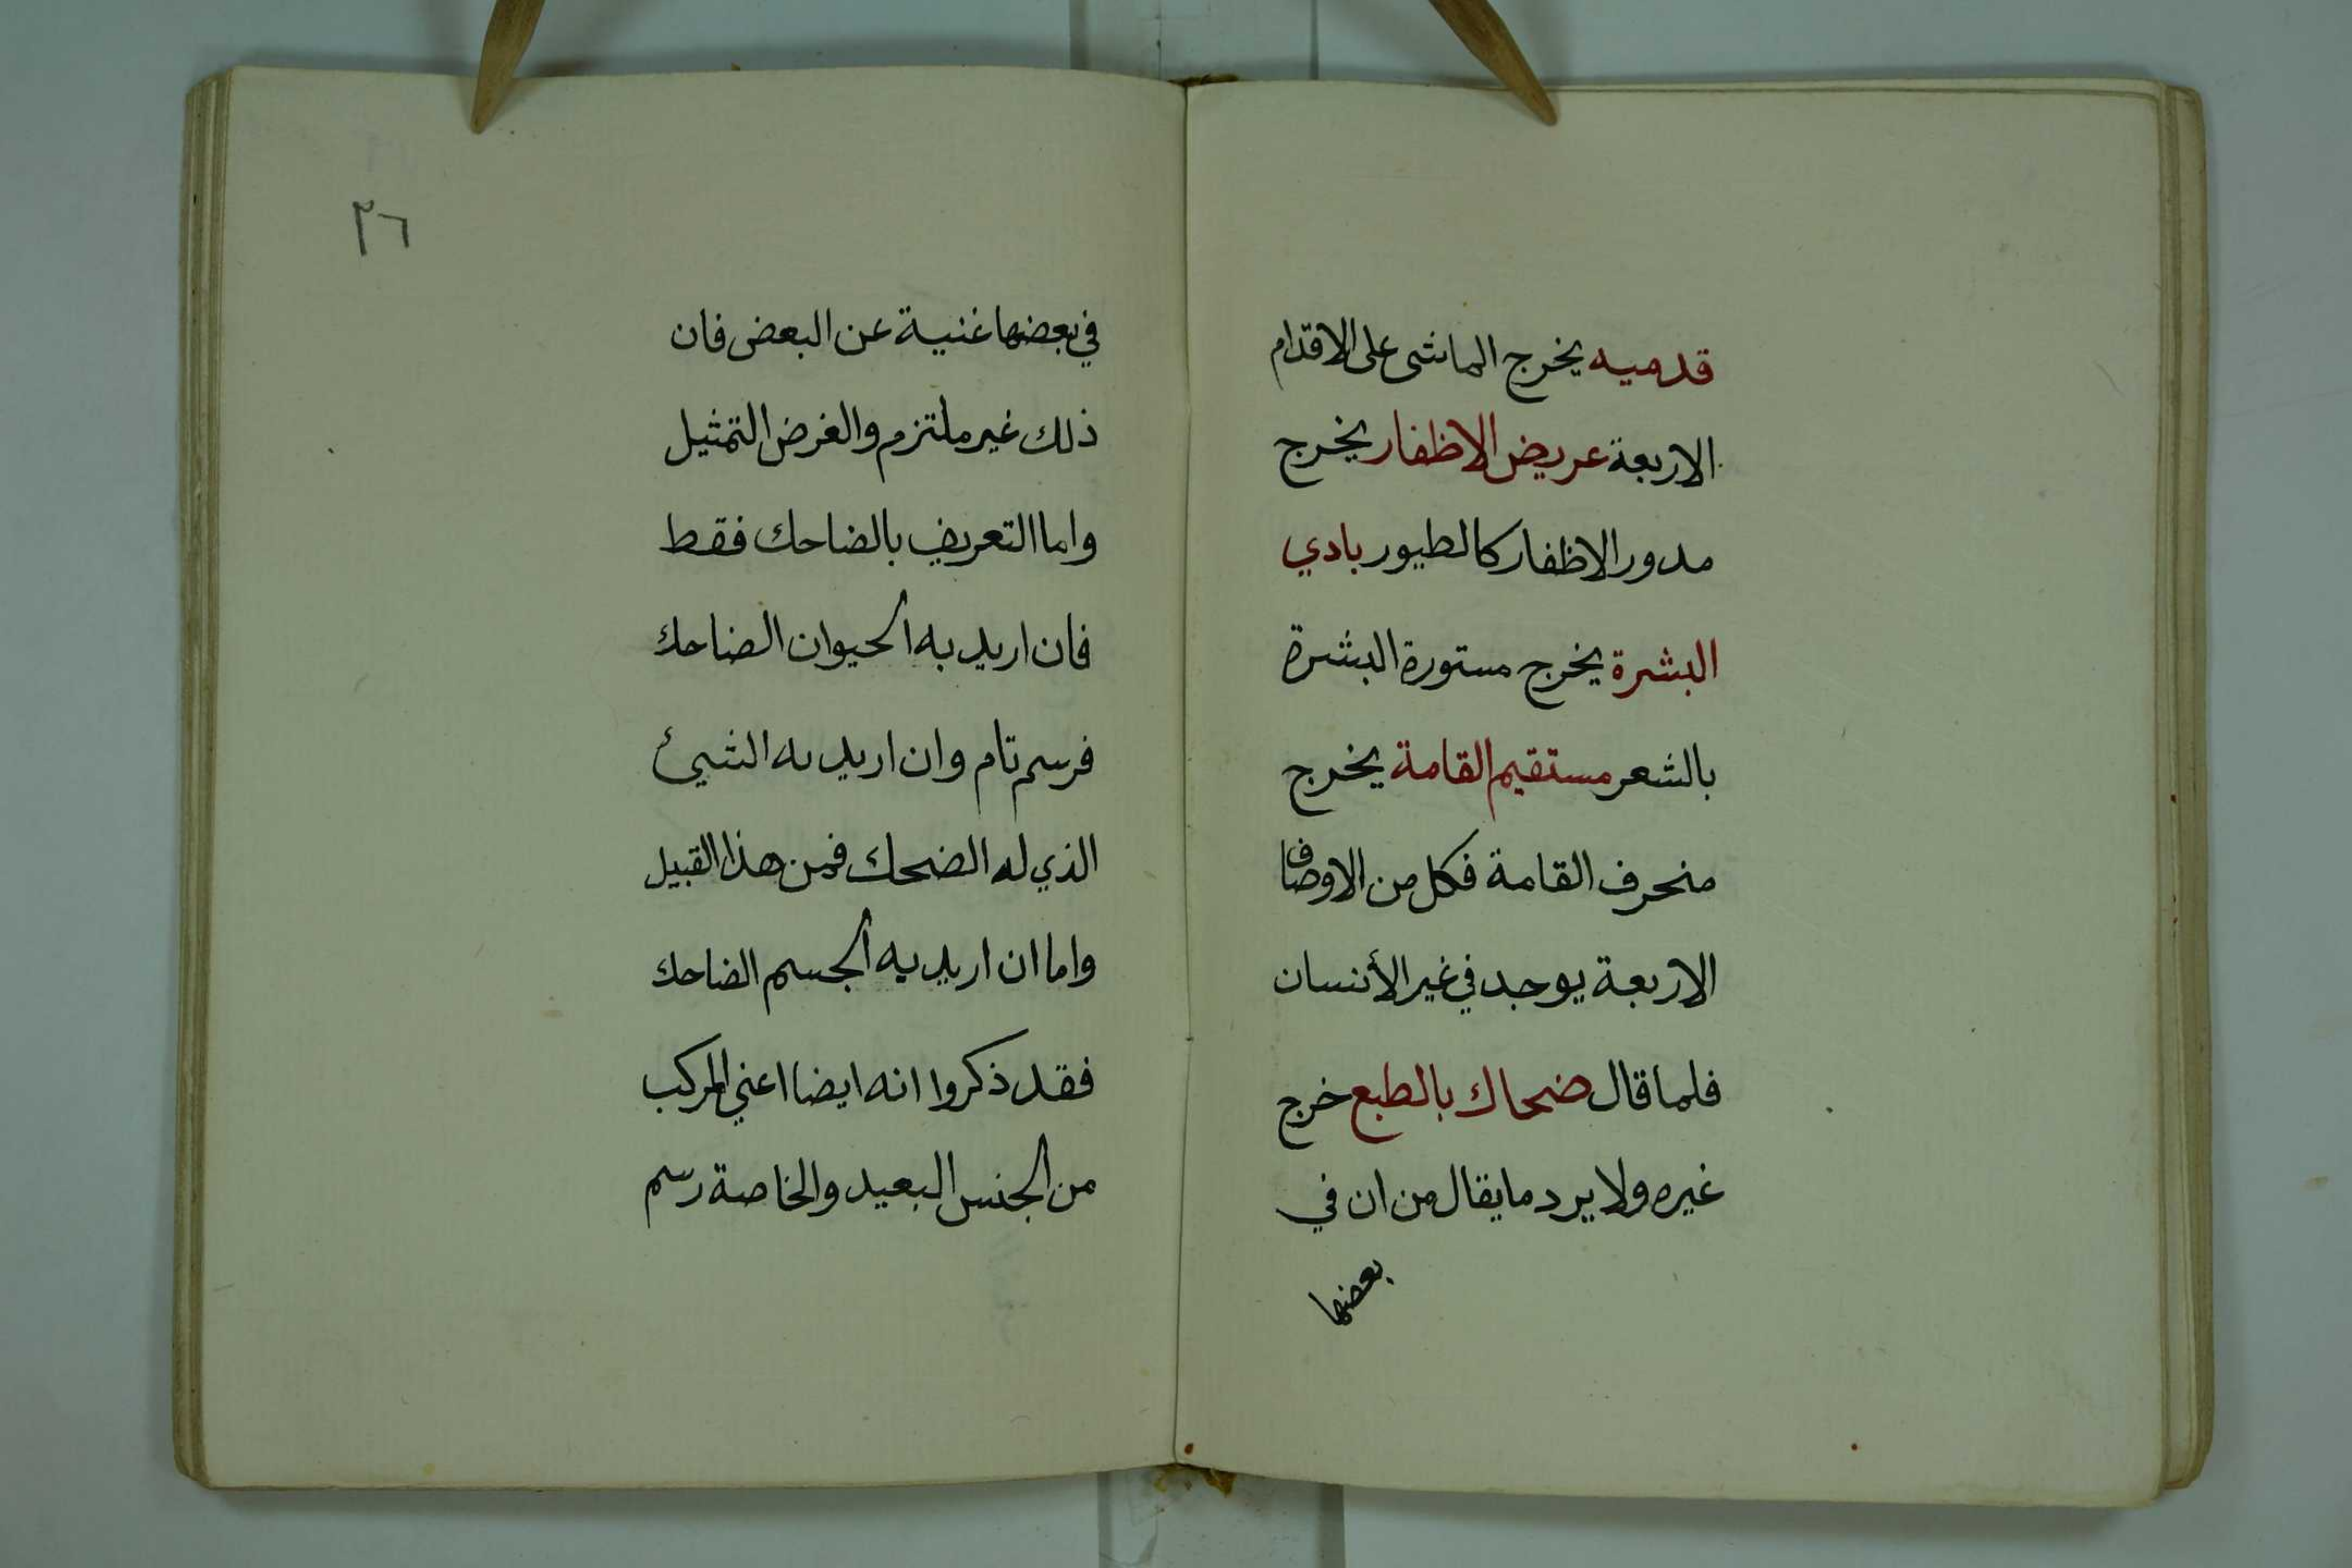 قدميه يخرج الماشى على الاقدام
الاربعة عريض الاظفار يخرج
مدور الاظفار كالطيور بادي
البشرة يخرج مستورة البشرة
بالشعر مستقيم القامة يخرج
منحرف القامة فكل من الاوصاف
الاربعة يوجد في غير الأنسان
فلما قال ضحاك بالطبع خرج
غيره ولا يرد ما يقال من ان في
بعضها
٣٦
في بعضها غنية عن البعض فان
ذلك غير ملتزم والغرض التمثيل
واما التعريف بالضاحك فقط
فان اريد به الحيوان الضاحك
فرسم تام وان اريد به الشيئ
الذي له الضحك فمن هذا القبيل
واما ان اريد به الجسم الضاحك
فقد ذكروا انه ايضا اعني المركب
من الجنس البعيد والخاصة رسم